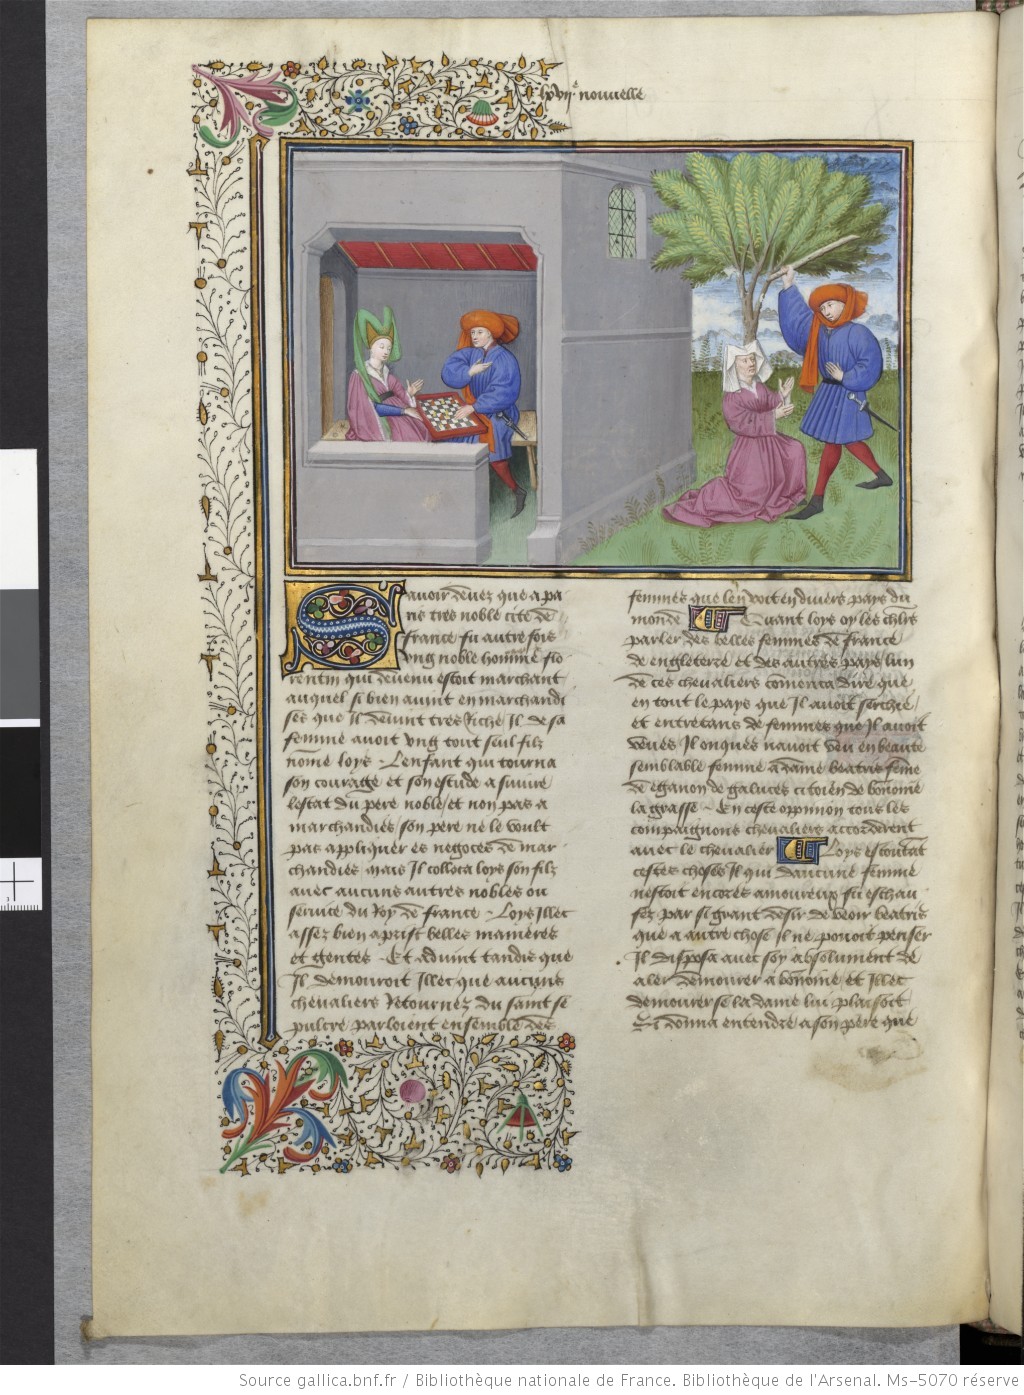 lxvij.e nouuelle
Sauoir deuez que a pa
ris tres noble cite de
france fu autre fois
vng noble homme flo
rentin qui deuenu estoit marchant
auquel si bien auint en marchandi
ses que Il deuint tres Riche Il de sa
femme auoit vng tout seul filz
nome loys . Lenfant qui tourna
son couraige et son estude a suiure
lestat du pere noble / et non pas a
marchandies / son pere ne le voult
pas appliquer es negoces de mar
chandies mais Il colloca loys son filz
auec aucuns autres nobles ou
seruice du Roy de france . Loys Illec
assez bien aprist belles manieres
et gentes . Et aduint tandis que
Il demouroit Illec que aucuns
cheualiers Retournez du saint se
pulcre parloient ensemble des
femmes que len voit en diuers pays du
monde Quant loys oy les chlrs
parler des belles femmes de france
de engleterre et des autres pays lun
de ces cheualiers comenca dire que
en tout le pays que Il auoit serchie
et entretans de femmes que Il auoit
veues Il onques nauoit veu en beaute
semblable femme a dame beatris feme
de eganon de galuces citoien de bonome
la grasse . En ceste oppinion tous les
compaignons cheualiers accorderent
auec le cheualier Loys escoutat
cestes choses Il qui daucune femme
nestoit encores amoureux fu eschau
fez par si grant desir de veoir beatris
que a autre chose Il ne pouoit penser
Il disposa auec soy absolument de
aler demourer a bonome et Illec
demourer se la dame lui plaisoit
Si donna entendre a son pere que
Source gallica.bnf.fr / Bibliothèque nationale de France. Bibliothèque de l'Arsenal. Ms-5070 réserve